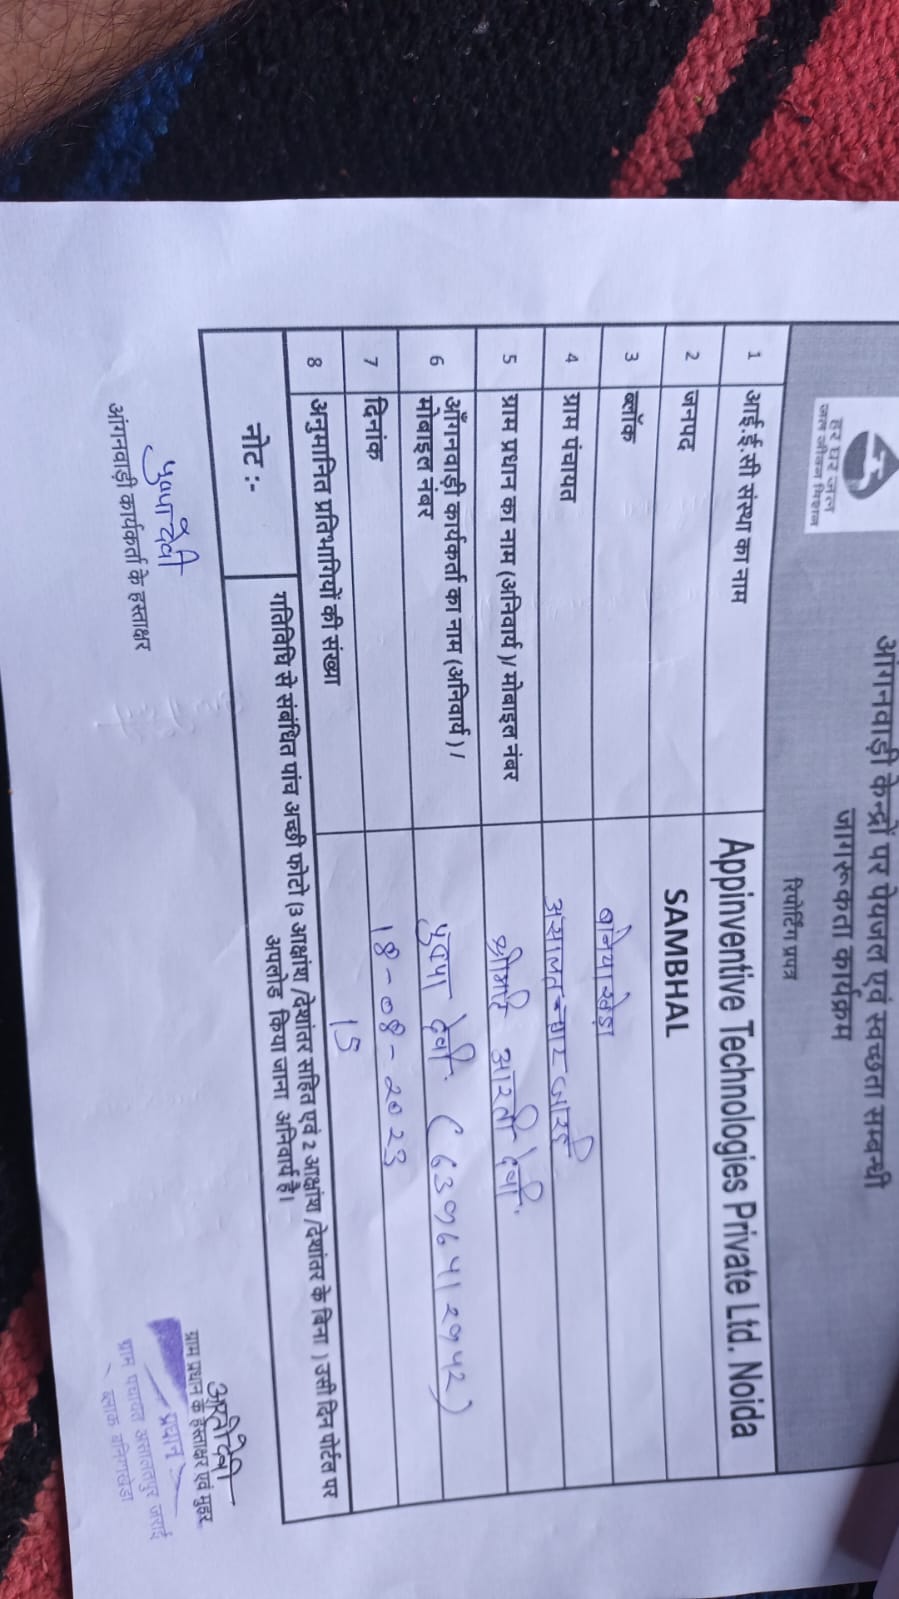 हर घर जल
जल जीवन मिशन
आंगनवाड़ी केन्द्रों पर पेयजल एवं स्वच्छता सम्बन्धी
जागरूकता कार्यक्रम
रिपोर्टिंग प्रपत्र
1 आई.ई.सी संस्था का नाम Appinventive Technologies Private Ltd. Noida
2 जनपद SAMBHAL
3 ब्लॉक बनियाखेड़ा
4 ग्राम पंचायत
5 ग्राम प्रधान का नाम (अनिवार्य )/ मोबाइल नंबर श्रीमति आरती देवी
6 आँगनवाड़ी कार्यकर्ता का नाम (अनिवार्य ) /
मोबाइल नंबर पुष्पा देवी
7 दिनांक 18-08-2023
8 अनुमानित प्रतिभागियों की संख्या 15
नोट :- गतिविधि से संबंधित पांच अच्छी फोटो (3 आक्षांश /देशांतर सहित एवं 2 आक्षांश /देशांतर के बिना ) उसी दिन पोर्टल पर
अपलोड किया जाना अनिवार्य है।
पुष्पा देवी
आंगनवाड़ी कार्यकर्ता के हस्ताक्षर
आरती देवी
ग्राम प्रधान के हस्ताक्षर एवं मुहर
प्रधान
ग्राम पंचायत असालतपुर जारई
ब्लाक बनियाखेडा